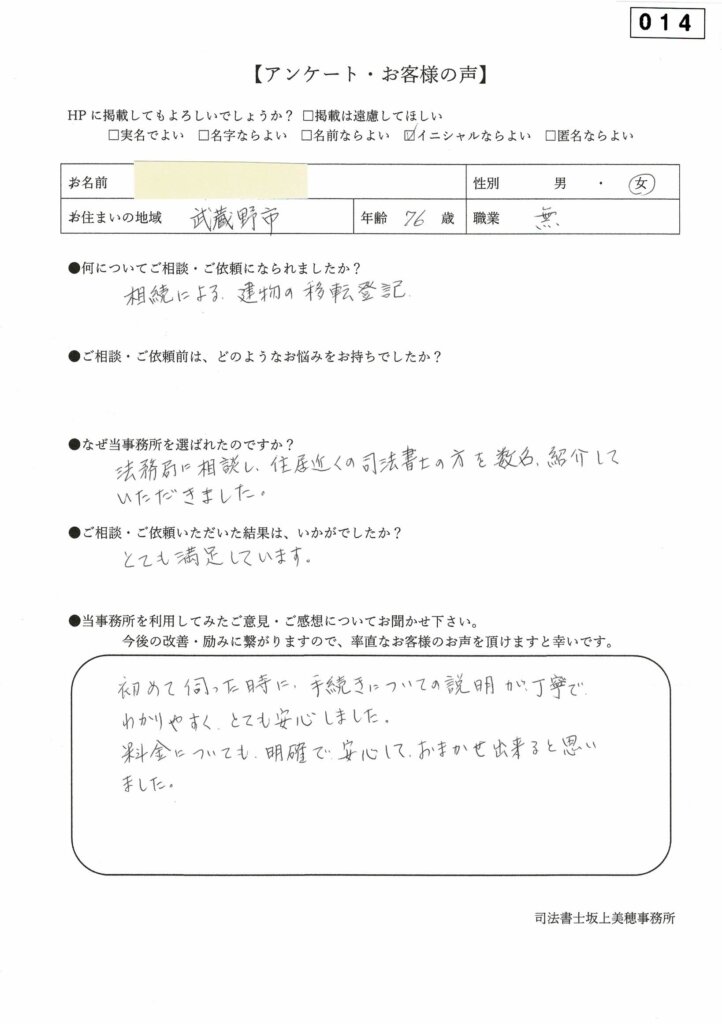 014
【アンケート・お客様の声】
HPに掲載してもよろしいでしょうか？ □掲載は遠慮してほしい
□実名でよい □名字ならよい □名前ならよい ☑イニシャルならよい □匿名ならよい
お名前 性別 男 ・ 女
お住まいの地域 武蔵野市 年齢 76 歳 職業 無
●何についてご相談・ご依頼になられましたか？
相続による、建物の移転登記.
●ご相談・ご依頼前は、どのようなお悩みをお持ちでしたか？
●なぜ当事務所を選ばれたのですか？
法務局に相談し、住居近くの司法書士の方を数名、紹介して
いただきました。
●ご相談・ご依頼いただいた結果は、いかがでしたか？
とても満足しています。
●当事務所を利用してみたご意見・ご感想についてお聞かせ下さい。
今後の改善・励みに繋がりますので、率直なお客様のお声を頂けますと幸いです。
初めて伺った時に、手続きについての説明が、丁寧で、
わかりやすく、とても安心しました。
料金についても、明確で、安心して、おまかせ出来ると思い
ました。
司法書士坂上美穂事務所